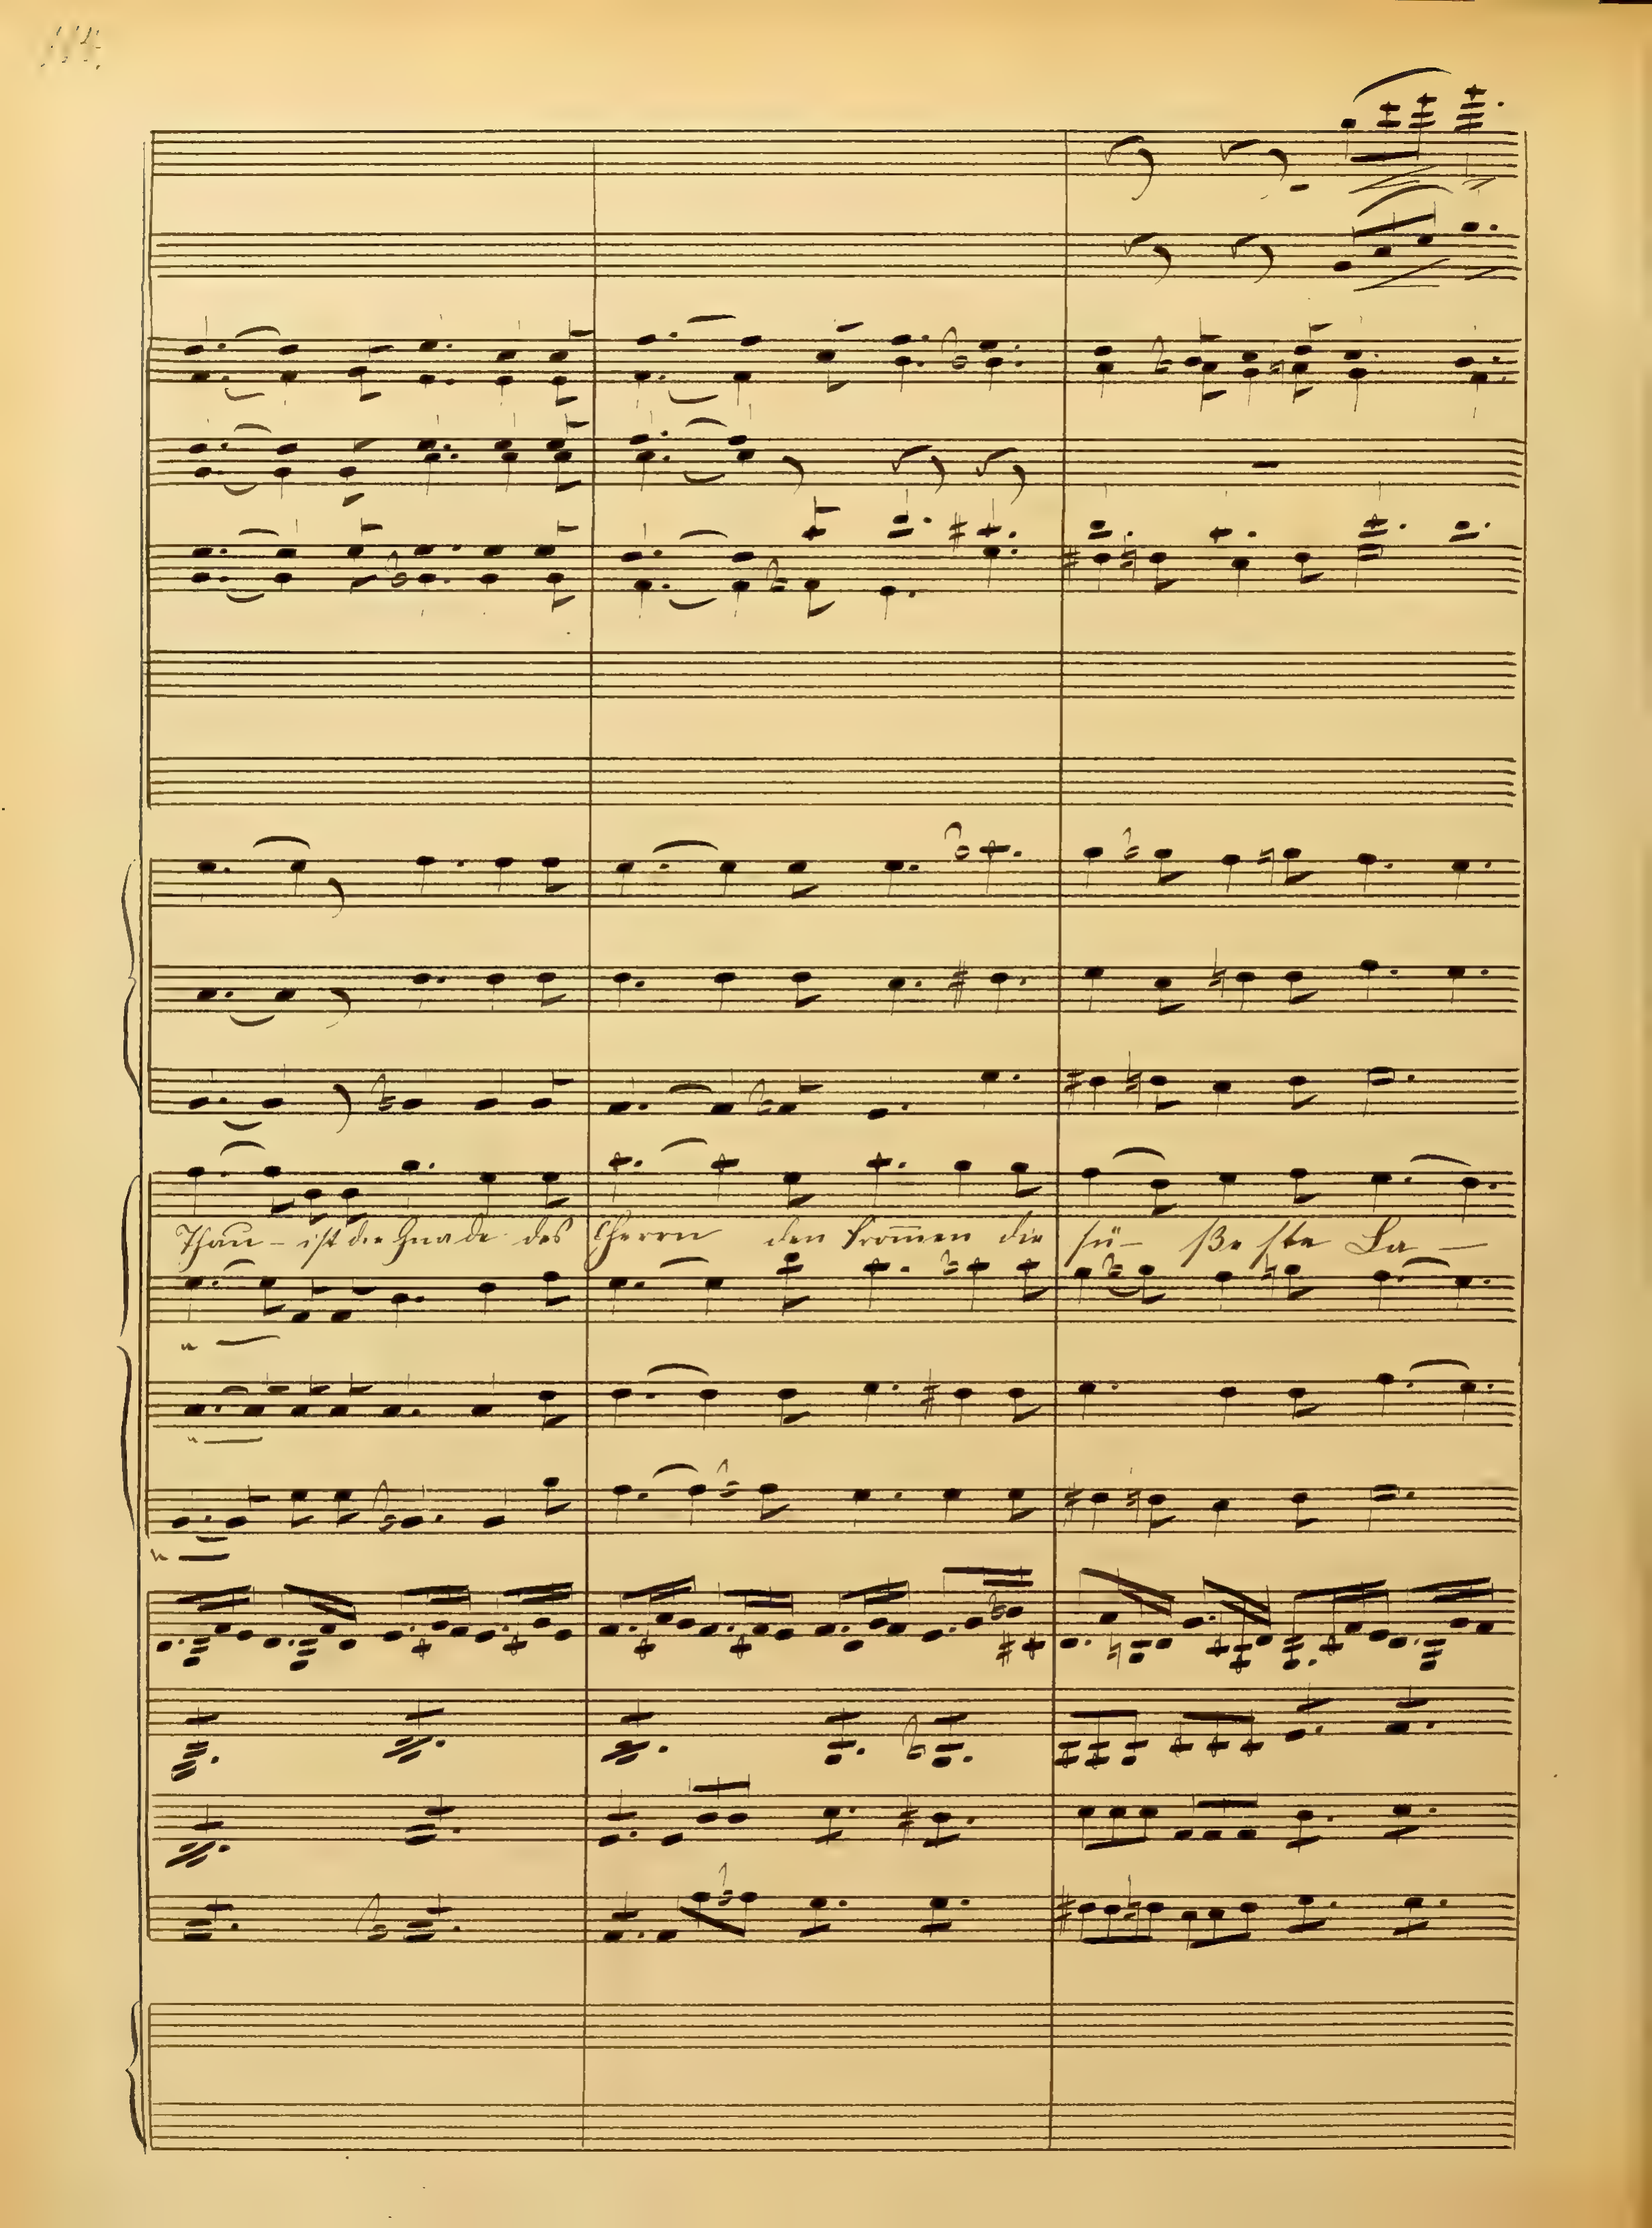 114.
Thau - ist die Gnade des Herrn den From̅en die sü - ße ste La -